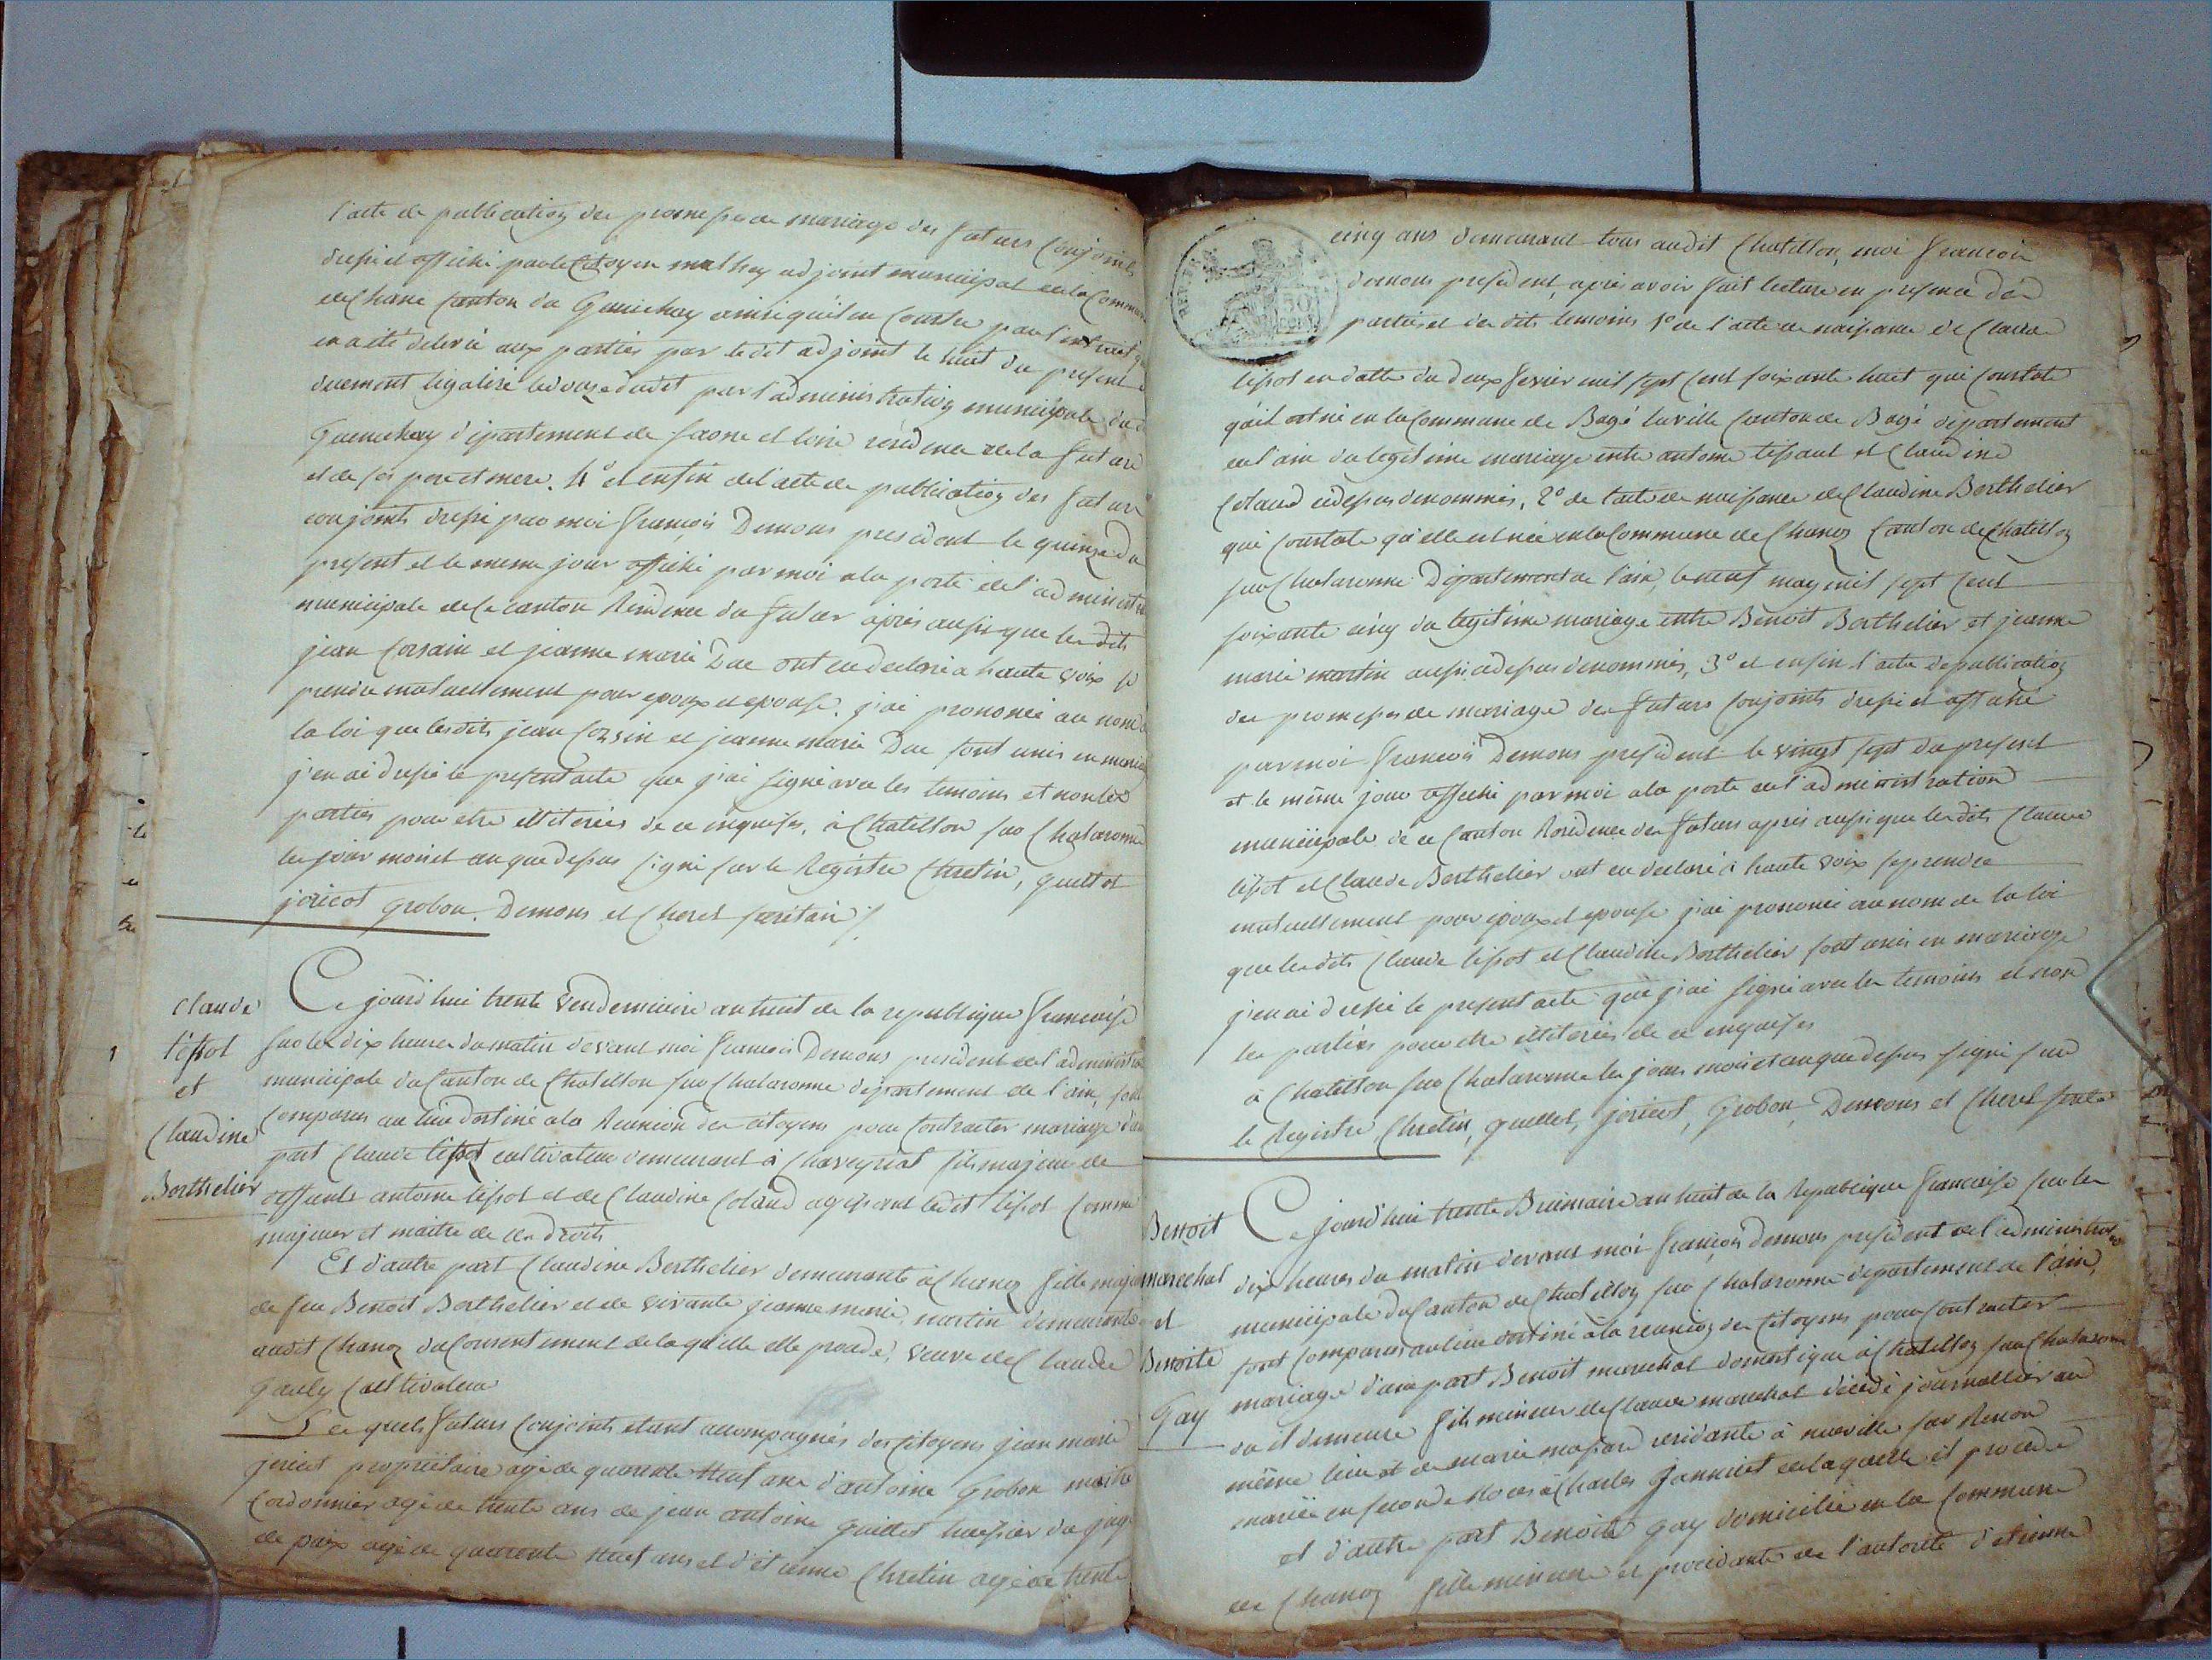 l'acte de publication des promesses de mariage des futurs Conjoints
dressé et affiché par le Citoyen mathey adjoint municipal de la Commune
de Chane Canton du Guenichay ainsi qu'il en Conste par l'extrait qui
en a été délivré aux parties par le dit adjoint le huit du present
duement légalisé le douze dudit par l'administration municipale dud
Guenichay département de saone et loire résidence de la future
et de ses pere et mere. 4° et enfin de l'acte de publication des futurs
conjoints dressé par moi françois Demons president le quinze du
present et le meme jour affiché par moi a la porte de l'administra
municipale de ce canton Residence du futur après aussi que les dits
jean Corsain et jeanne marie Duc ont eu declaré a haute voix se
prendre mutuellement pour epoux et epouse. j'ai prononcé au nom de
la loi que les dits jean Corsin et jeanne marie Duc sont unis en mariage
j'en ai dressé le present acte que j'ai signé avec les temoins et non les
parties pour etre illiterées de ce enquises, à Chatillon sur Chalaronne
les jour mois et an que dessus signé sur le Registre Chretin, Guillet
jericot grobon. Demons et Cheret secretair /.
Claude
lépot
et
Claudine
Berthelier
Ce jourd'hui trente Vendemiaire an huit de la republique francaise
sur les dix heures du matin devant moi francois Demons président de l'administra
municipale du Canton de Chatillon sur Chalaronne département de l'ain, sont
Comparus au lieu destiné a la Reunion des citoyens pour Contracter mariage d'une
part Claude lépot cultivateur demeurant à Chaveyriat fils majeur de
deffunts antoine lépot et de Claudine Coland agissant ledit lépot Comme
majeur et maitre de ses droits
Et d'autre part Claudine Berthelier demeurante à Chanoz fille majeure
de feu Benoit Berthelier et de vivante jeanne marie martin demeurante
audit Chanoz du Consentement de laquelle elle procede, veuve de Claude
Gauly Cultivateur
Lesquels futurs Conjoints etant accompagnés des Citoyens jean marie
jericot propriétaire agé de quarante neuf ans d'antoine Grobon maitre
Cordonnier agé de trente ans de jean antoine Guillet huissier du juge
de paix agé de quarante huit ans et d'étienne Chretin agé de trente
cinq ans demeurant tous audit Chatillon, moi francois
demons president, après avoir fait lecture en presence des
parties et des dits temoins 1° de l'acte de naissance de Claude
lépot en datte du deux fevrier mil sept cent soixante huit qui Constate
qu'il est né en la Commune de Bagé la ville Canton de Bagé département
de l'ain du legitime mariage entre antoine lépaul et Claudine
Coland cidessus denommés, 2° de l'acte de naissance de Claudine Berthelier
qui Constate qu'elle est née en la Commune de Chanoz Canton de Chatillon
sur Chalaronne Département de l'ain, le neuf may mil sept cent
soixante cinq du legitime mariage entre Benoit Berthelier et jeanne
marie martin aussi cidessus denommés, 3° et enfin l'acte de publication
des promesses de mariage des futurs Conjoints dressé et affiché
par moi francois Demons president le vingt sept du present
et le même jour affiché par moi a la porte de l'administration
municipale de ce Canton Residence des futurs après aussi que les dits Claude
lépot et Claude Berthelier ont eu declaré à haute voix se prendre
mutuellement pour epoux et epouse j'ai prononcé au nom de la loi
que les dits Claude lépot et Claudine Berthelier sont unis en mariage
j'en ai dressé le present acte que j'ai signé avec les temoins et non
les parties pour etre illiterées de ce enquises
à Chatillon sur Chalaronne les jour mois et an que dessus signé sur
le Registre Chretin, Guillet, jericot, Grobon, Demons et Cheret
Benoit
marechal
et
Benoite
Gay
Ce jourd'hui trente Brumaire an huit de la Republique francaise sur les
dix heures du matin devant moi françois Demons president de l'administra
municipale du Canton de Chatillon sur Chalaronne departement de l'ain,
sont Comparus au lieu destiné à la reunion des Citoyens pour Contracter
mariage d'une part Benoit marechal domestique à Chatillon sur Chalaronne
ou il demeure fils mineur de Claude marechal décédé journallier au
même lieu et de marie residante à neuville sur Renon
mariée en seconde Noces à Charles Janninet de laquelle il procede
et d'autre part Benoite Gay domiciliée en la Commune
de Chanoz fille mineure et procedante de l'autorité d'etienne